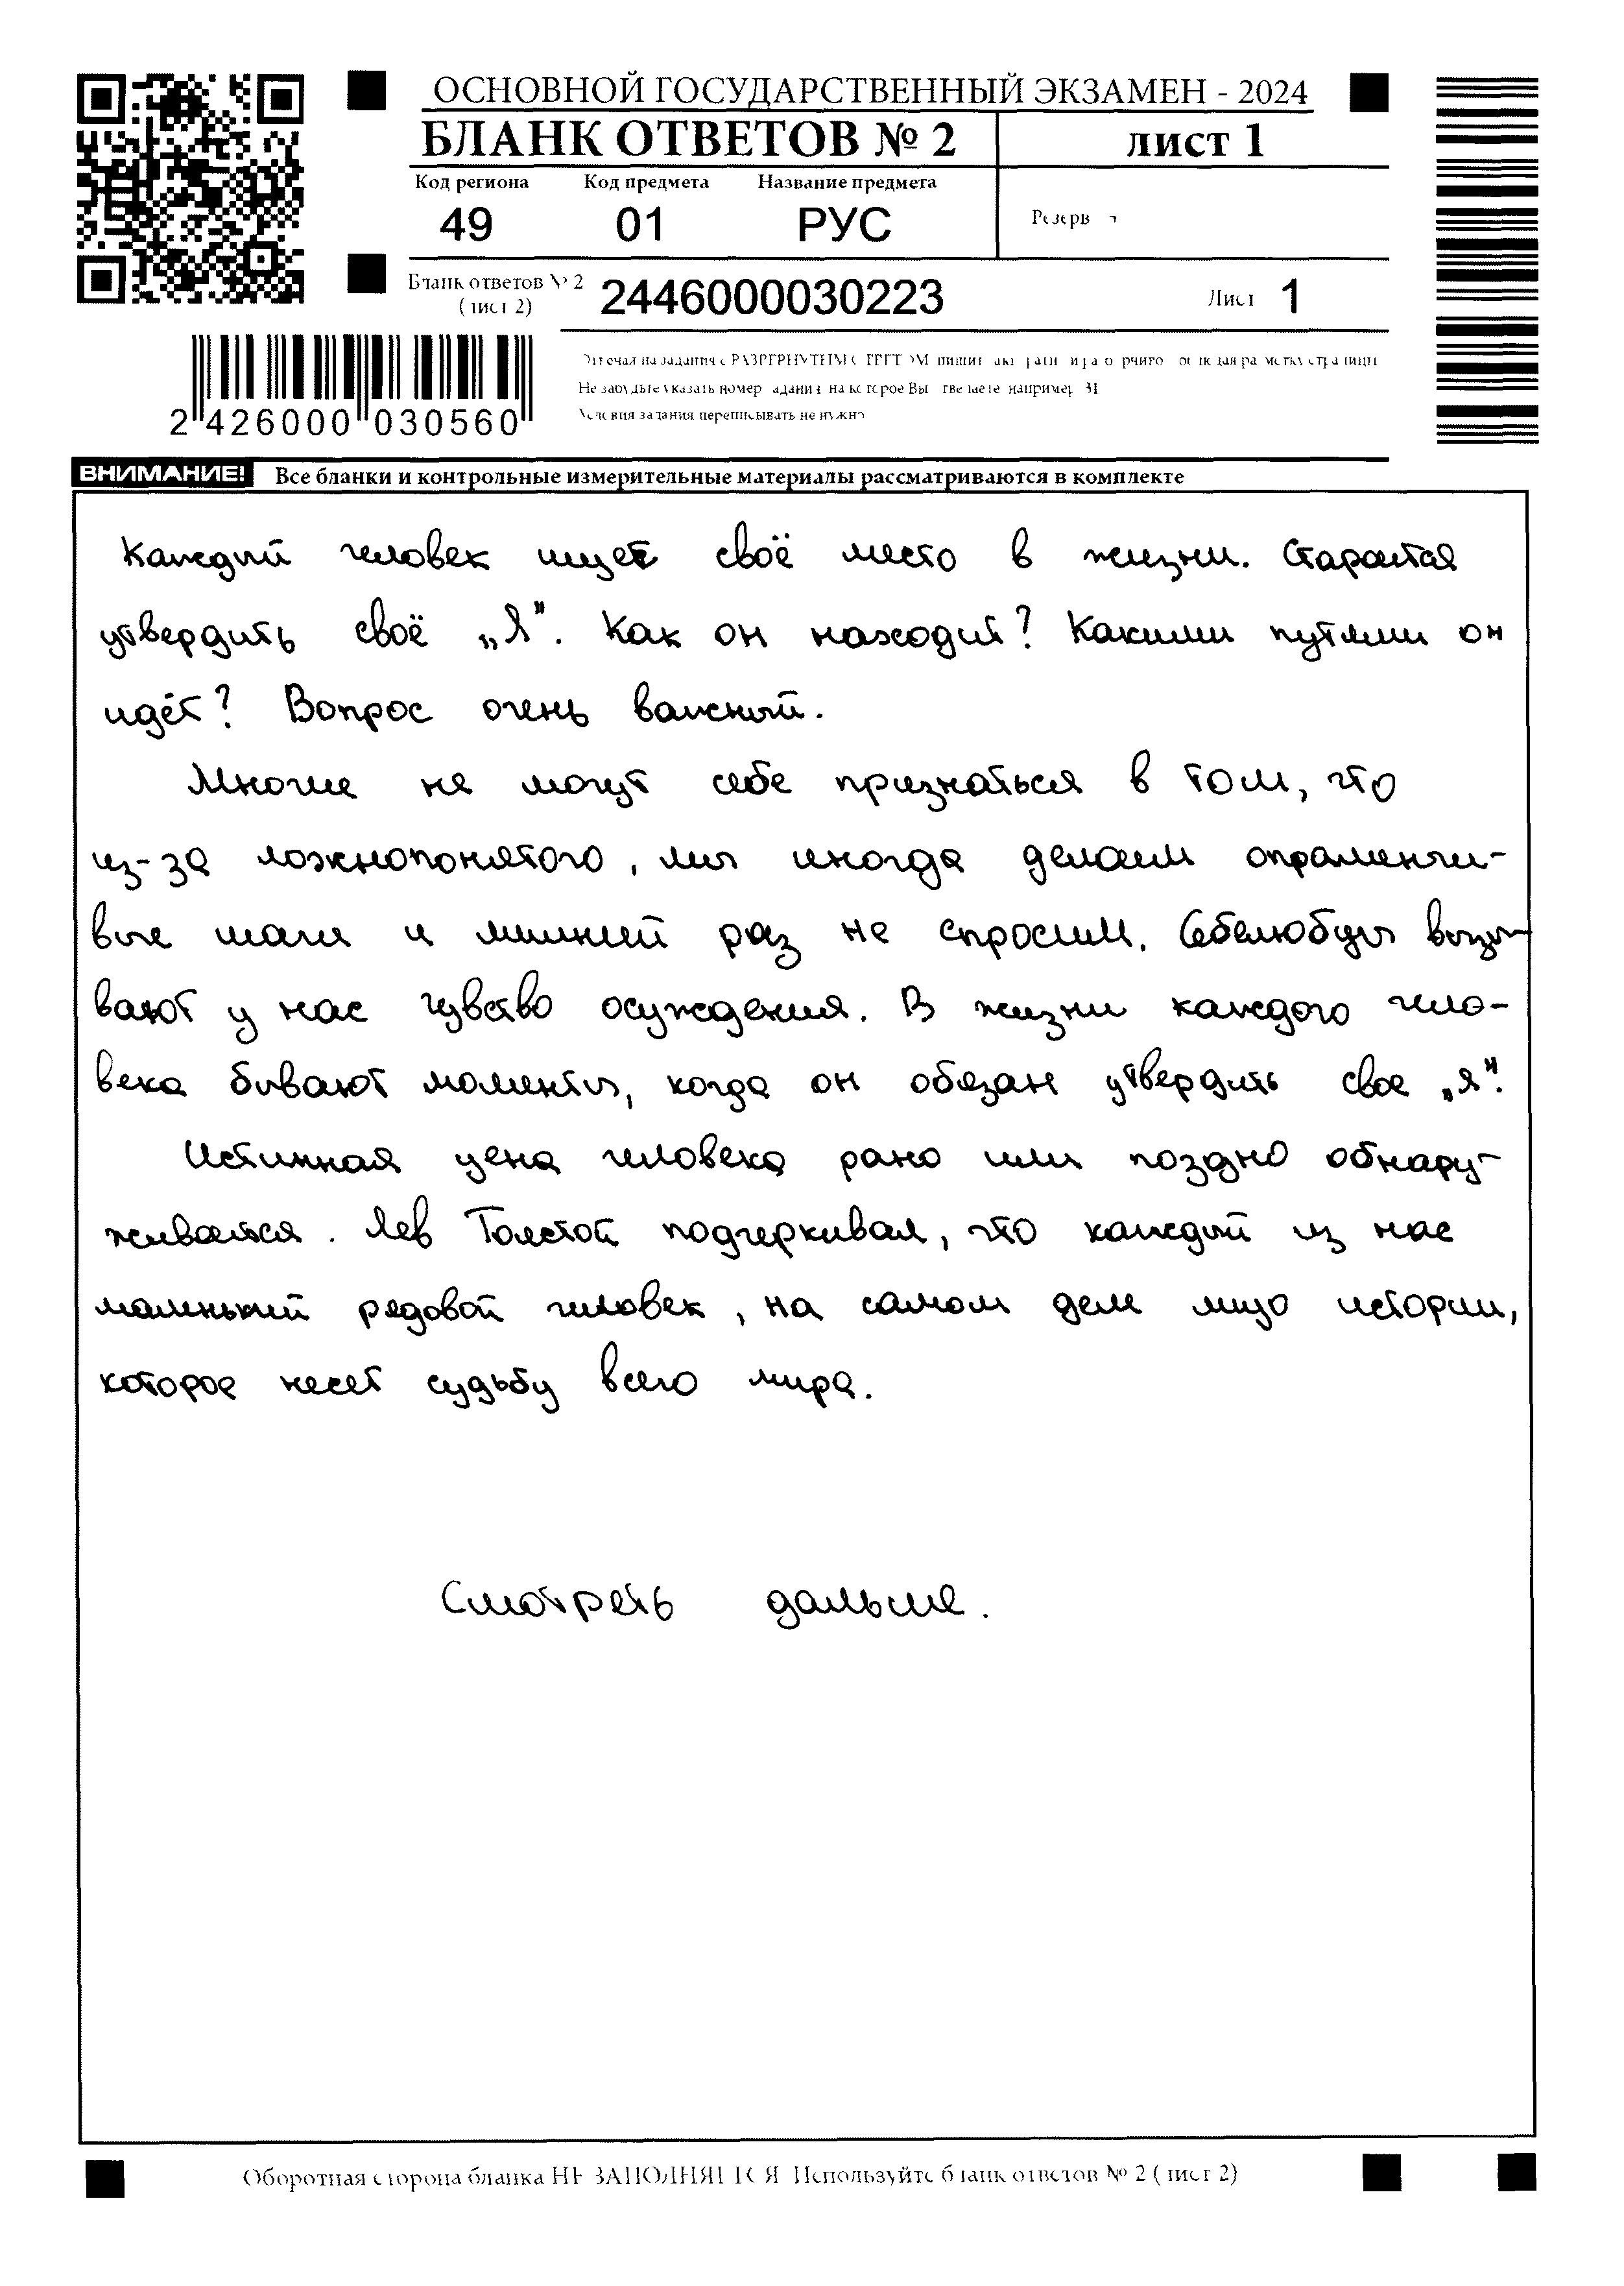 ОСНОВНОЙ ГОСУДАРСТВЕННЫЙ ЭКЗАМЕН - 2024
БЛАНК ОТВЕТОВ № 2
лист 1
Код региона Код предмета Название предмета
49 01 РУС
Резерв
Бланк ответов № 2
(лист 2)
2446000030223
Лист 1
Не забудьте указать номер задания на которое Вы отвечаете например 31
Условия задания переписывать не нужно
2 426000 030560
ВНИМАНИЕ! Все бланки и контрольные измерительные материалы рассматриваются в комплекте
Каждый человек ищет своё место в жизни. Старается
утвердить своё „Я". Как он находит? Какими путями он
идёт? Вопрос очень важный.
Многие не могут себе признаться в том, что
из-за ложнопонятого, мы иногда делаем опраменчи-
вые шаги и лишний раз не спросим. Себелюбцы вызы-
вают у нас чувство осуждения. В жизни каждого чело-
века бывают моменты, когда он обязан утвердить свое „я".
Истинная цена человека рано или поздно обнару-
живается. Лев Толстой подчеркивал, что каждый из нас
маленький рядовой человек, на самом деле лицо истории,
которое несет судьбу всего мира.
Смотреть дальше.
Оборотная сторона бланка НЕ ЗАПОЛНЯЕТСЯ Используйте бланк ответов № 2 (лист 2)